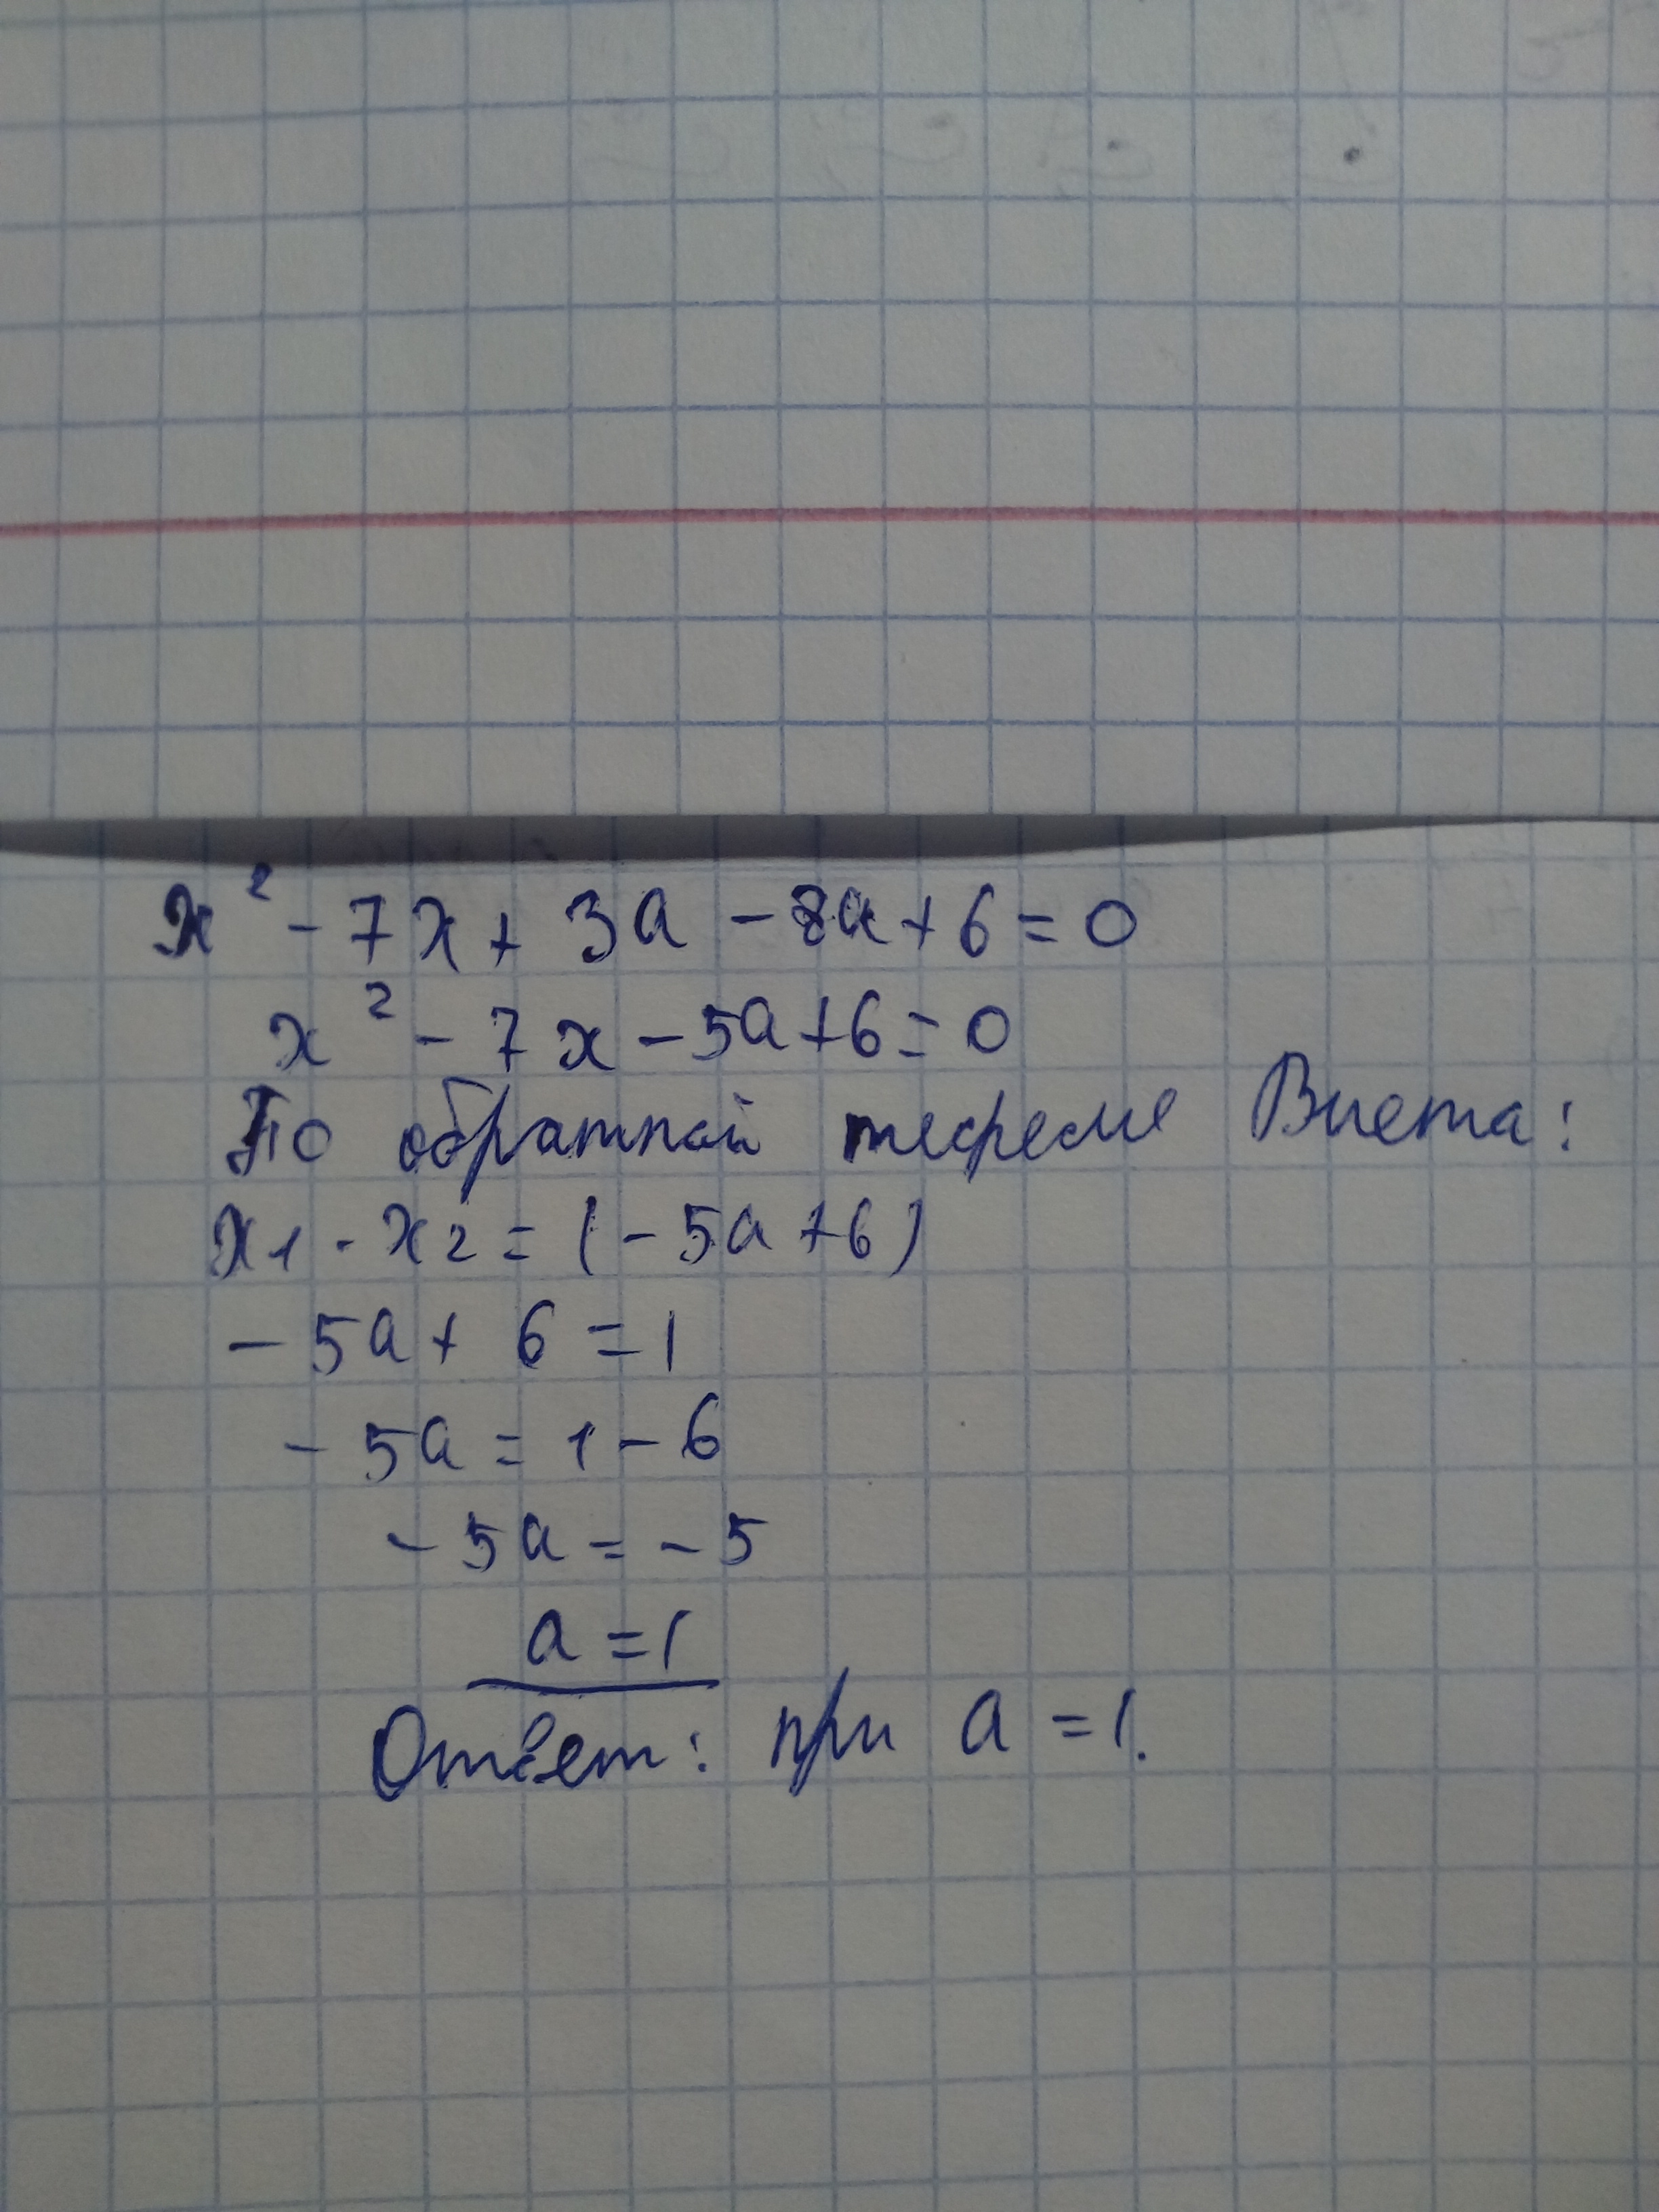 x² - 7x + 3a - 8a + 6 = 0
x² - 7x - 5a + 6 = 0
По обратной теореме Виета:
x1 · x2 = (-5a + 6)
-5a + 6 = 1
-5a = 1 - 6
-5a = -5
a = 1
Ответ: при a = 1.